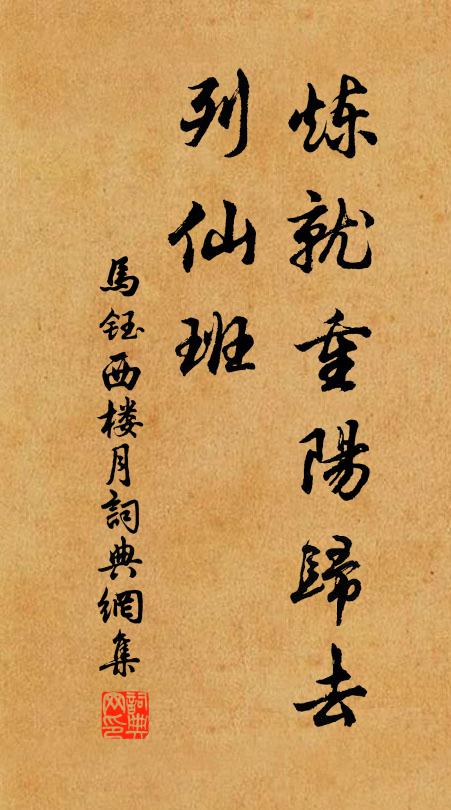 炼就重陽歸去
列仙班
馬鈺西楼月詞典網集
詞典网印